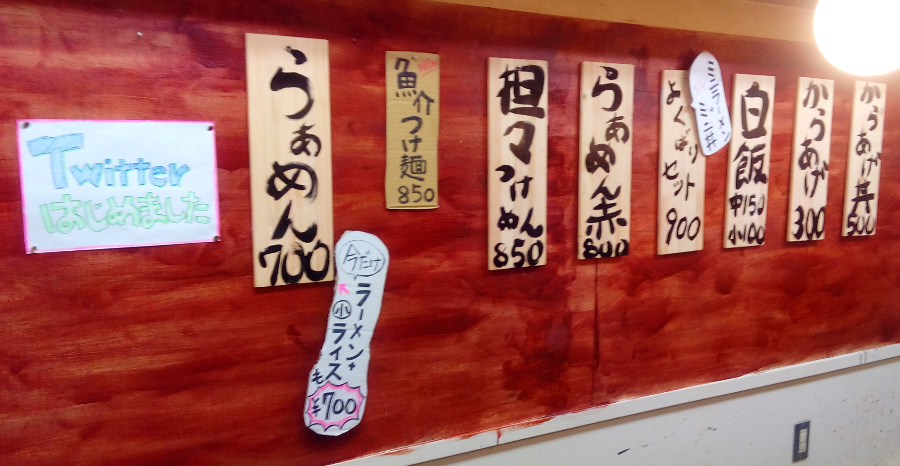 Twitter
はじめました
らぁめん
700
今だけ
ラーメン+
小ライス
も
¥700
魚介つけ麺
850
担々つけめん
850
らぁめん赤
800
よくばりセット
900
ミニラーメン
ミニ丼
白飯
中150
小100
からあげ
300
からあげ丼
500